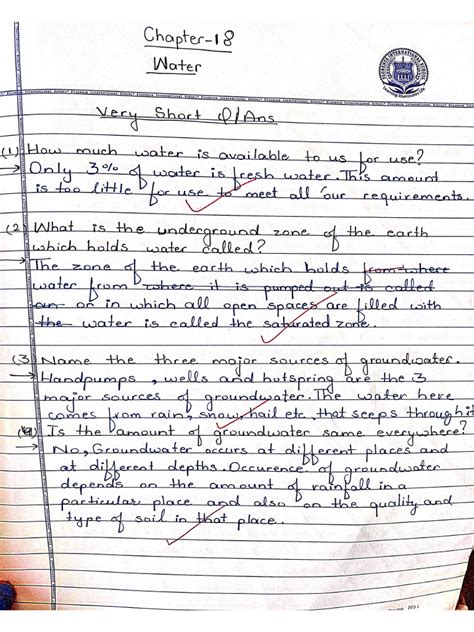 Chapter-18
Water
FLORENCE INTERNATIONAL SCHOOL
Very Short Q/Ans
(1) How much water is available to us for use?
→ Only 3% of water is fresh water. This amount
is too little for use to meet all our requirements.
(2) What is the underground zone of the earth
which holds water called?
→ The zone of the earth which holds from where
water from where it is pumped out is called
an or in which all open spaces are filled with
the water is called the saturated zone.
(3) Name the three major sources of groundwater.
→ Handpumps, wells and hotspring are the 3
major sources of groundwater. The water here
comes from rain, snow, hail etc. that seeps through it
(4) Is the amount of groundwater same everywhere?
→ No, Groundwater occurs at different places and
at different depths. Occurence of groundwater
depends on the amount of rainfall in a
particular place and also on the quality and
type of soil in that place.